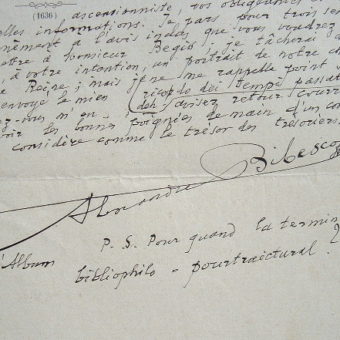 (1636)
ascensionniste, vos obligeantes
elles informations. Je pars pour trois sem
nément à l'avis inclus que vous voudrez
ettre à Monsieur Begis, je tâcherai d
, à votre intention, un portrait de notre ch
Reine; mais je ne me rappelle point v
envoyé le mien (ricordo dei tempi passati
dei) avisez retour courr
-vous m'en
les bonnes poignées de main d'un con
considère comme le trésor des trésoriers
Alexandre Bibesco
P. S. Pour quand la termin
d'Album
bibliophilo-pourtraictural?